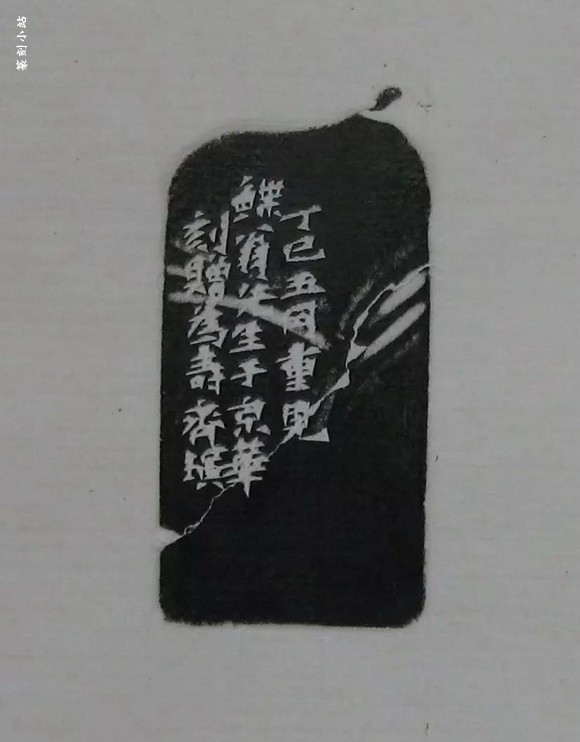 篆刻小站
丁巳五月重見
鰈翁先生于京華
刻贈為壽齊璜